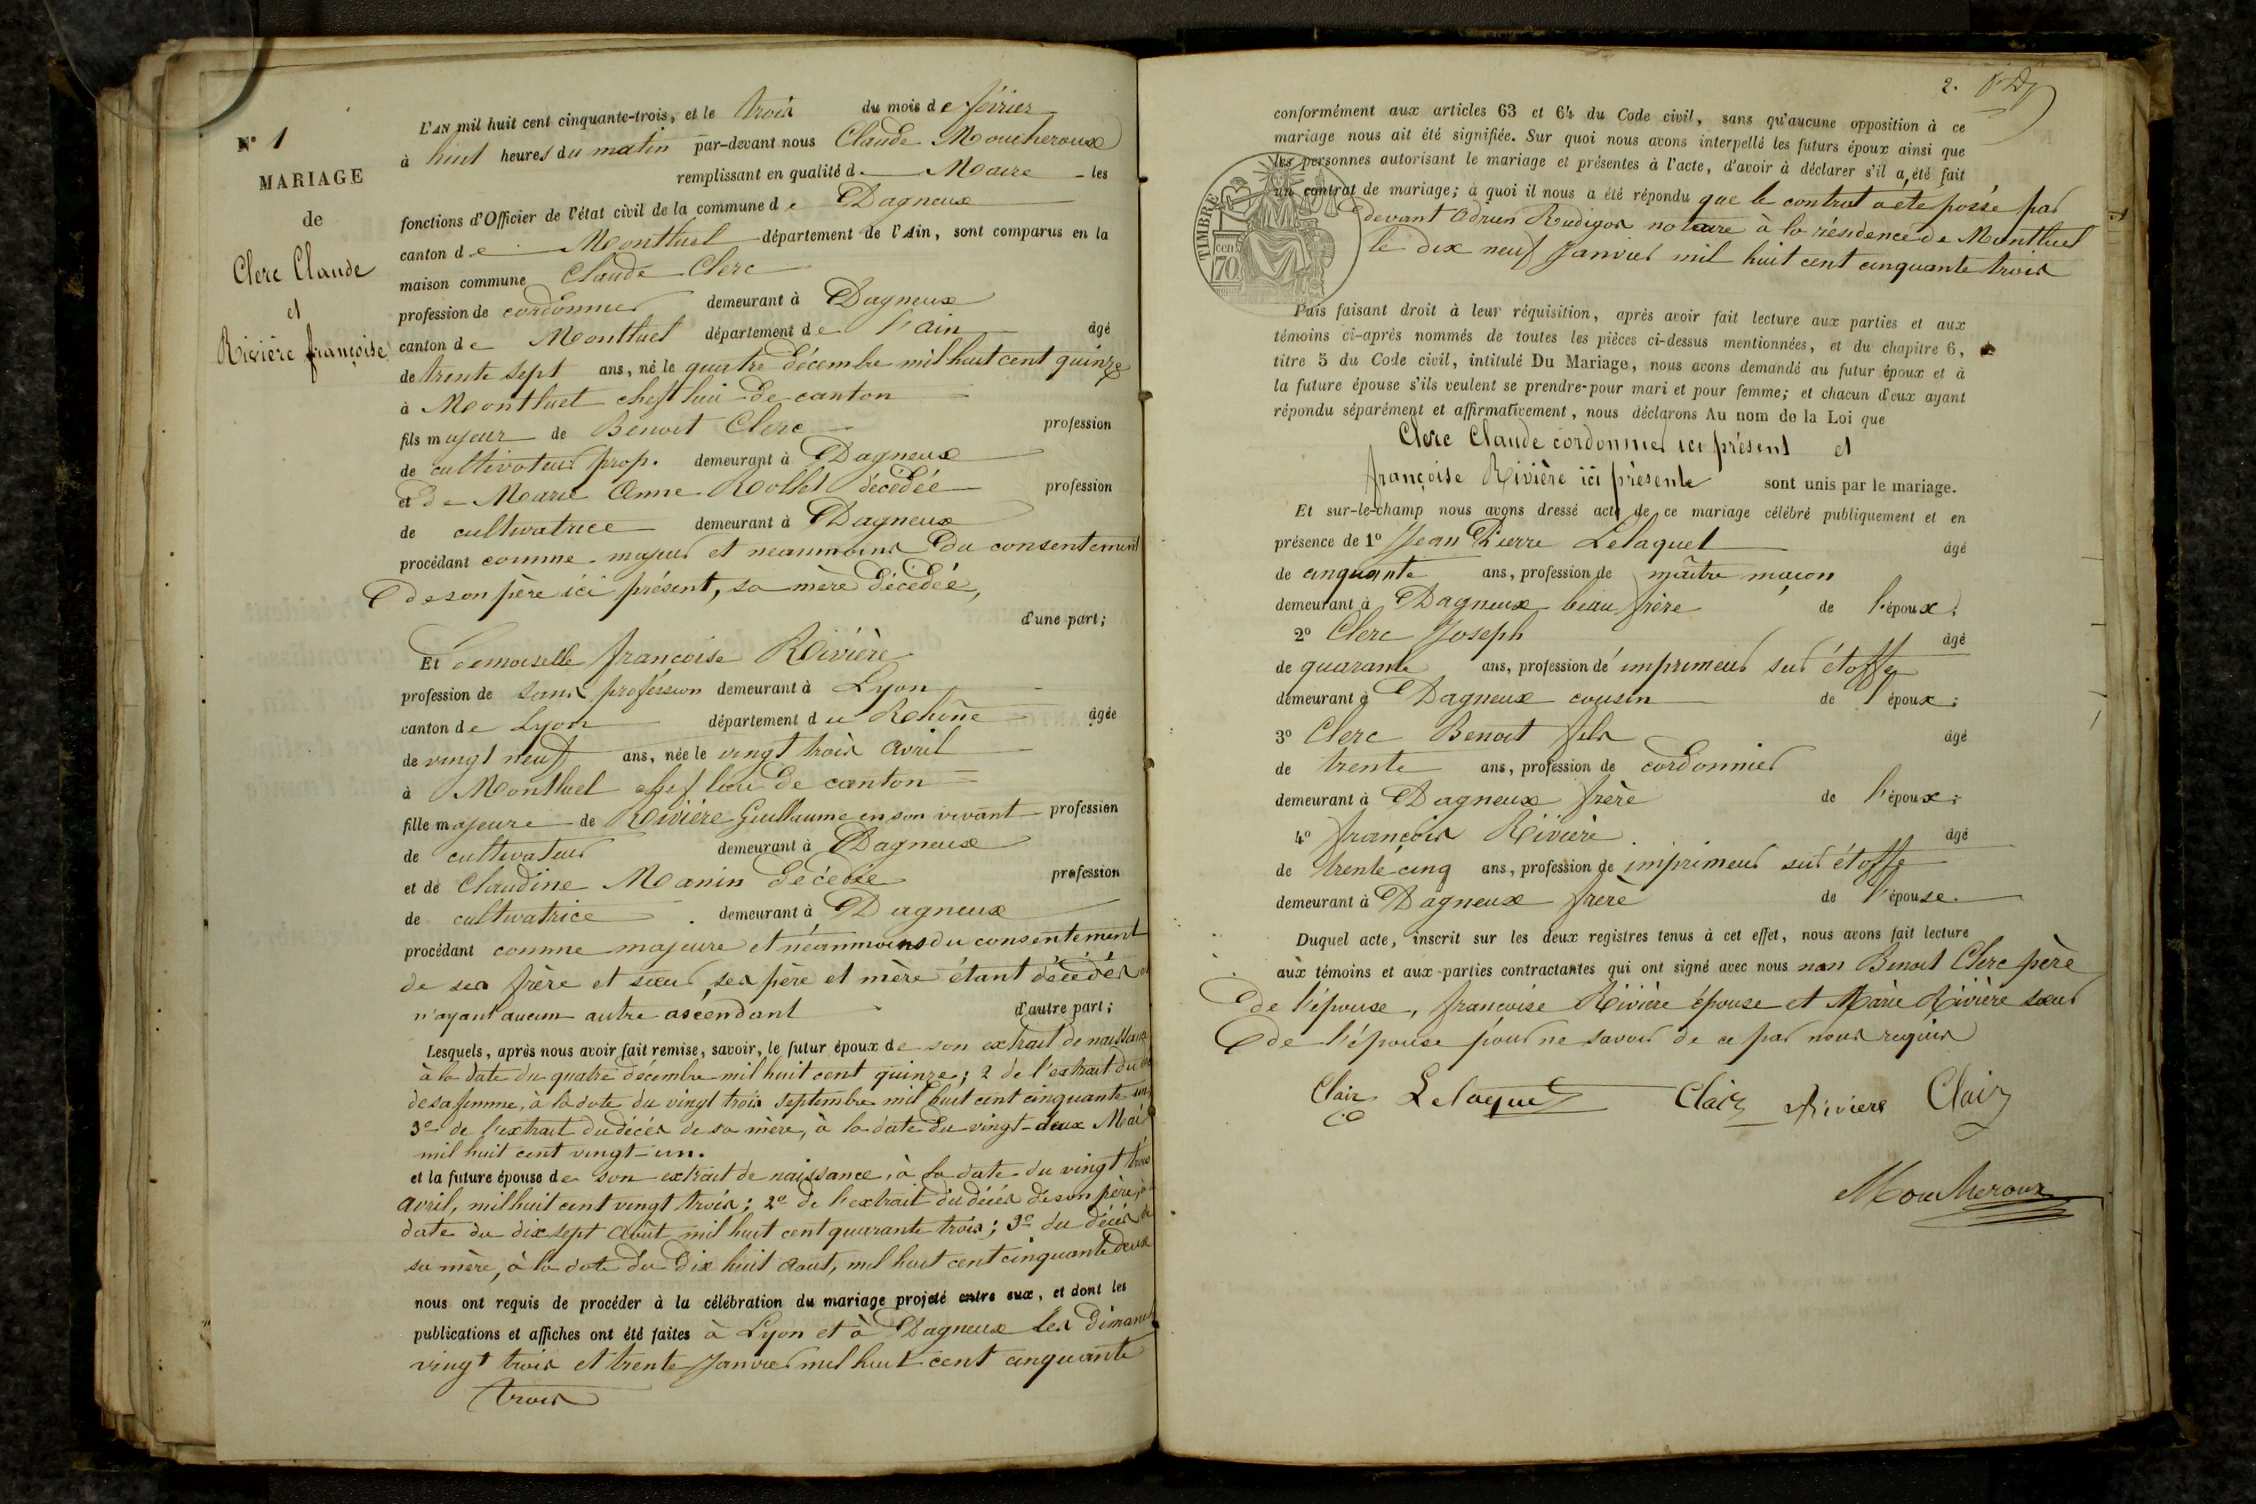 N° 1
MARIAGE
de
Clerc Claude
et
Rivière françoise
L'AN mil huit cent cinquante-trois, et le trois du mois de février
à huit heures du matin par-devant nous Claude Moucheroux
remplissant en qualité de Maire les
fonctions d'Officier de l'état civil de la commune de Dagneux
canton de Montluel département de l'Ain, sont comparus en la
maison commune Claude Clerc
profession de cordonnier demeurant à Dagneux
canton de Montluel département de l'ain âgé
de trente sept ans, né le quatre décembre mil huit cent quinze
à Montluel chef lieu de canton
fils majeur de Benoit Clerc profession
de cultivateur prop. demeurant à Dagneux
et de Marie Anne décédée profession
de cultivatrice demeurant à Dagneux
procédant comme majeur et neanmoins du consentement
de son père ici présent, sa mère décédée,
d'une part;
Et demoiselle françoise Rivière
profession de sans profession demeurant à Lyon
canton de Lyon département du Rhône âgée
de vingt neuf ans, née le vingt trois avril
à Montluel chef lieu de canton
fille majeure de Rivière Guillaume en son vivant profession
de cultivateur demeurant à Dagneux
et de Claudine Manin décédée profession
de cultivatrice demeurant à Dagneux
procédant comme majeure et néanmoins du consentement
de ses frère et sœur, ses père et mère étant décédés et
n'ayant aucun autre ascendant d'autre part;
Lesquels, après nous avoir fait remise, savoir, le futur époux de son extrait de naissance
à la date du quatre décembre mil huit cent quinze; 2 de l'extrait du
de sa femme, à la date du vingt trois septembre mil huit cent cinquante un
3° de l'extrait du décès de sa mère, à la date du vingt-deux Mai
mil huit cent vingt-un.
et la future épouse de son extrait de naissance, à la date du vingt trois
avril, mil huit cent vingt trois; 2° de l'extrait du décès de son père, à
date du dix sept Août mil huit cent quarante trois; 3° du décès de
sa mère, à la date du dix huit aout, mil huit cent cinquante deux
nous ont requis de procéder à la célébration du mariage projeté entre eux, et dont les
publications et affiches ont été faites à Lyon et à Dagneux les dimanches
vingt trois et trente Janvier mil huit cent cinquante
trois
2.
conformément aux articles 63 et 64 du Code civil, sans qu'aucune opposition à ce
mariage nous ait été signifiée. Sur quoi nous avons interpellé les futurs époux ainsi que
les personnes autorisant le mariage et présentes à l'acte, d'avoir à déclarer s'il a été fait
un contrat de mariage; à quoi il nous a été répondu que le contrat a été passé par
devant Adrien Rudigoz notaire à la résidence de Montluel
le dix neuf Janvier mil huit cent cinquante trois
TIMBRE
70
cen
Puis faisant droit à leur réquisition, après avoir fait lecture aux parties et aux
témoins ci-après nommés de toutes les pièces ci-dessus mentionnées, et du chapitre 6,
titre 5 du Code civil, intitulé Du Mariage, nous avons demandé au futur époux et à
la future épouse s'ils veulent se prendre pour mari et pour femme; et chacun d'eux ayant
répondu séparément et affirmativement, nous déclarons Au nom de la Loi que
Clerc Claude cordonnier ici présent et
françoise Rivière ici présente sont unis par le mariage.
Et sur-le-champ nous avons dressé acte de ce mariage célébré publiquement et en
présence de 1° Jean Pierre Lelaquet âgé
de cinquante ans, profession de maître maçon
demeurant à Dagneux beau frère de l'époux;
2° Clerc Joseph âgé
de quarante ans, profession de imprimeur sur étoffe
demeurant à Dagneux cousin de l'époux;
3° Clerc Benoit fils âgé
de trente ans, profession de cordonnier
demeurant à Dagneux frère de l'époux;
4° françois Rivière âgé
de trente cinq ans, profession de imprimeur sur étoffe
demeurant à Dagneux frère de l'épouse.
Duquel acte, inscrit sur les deux registres tenus à cet effet, nous avons fait lecture
aux témoins et aux parties contractantes qui ont signé avec nous non Benoit Clerc père
de l'épouse, françoise Rivière épouse et Marie Rivière sœur
de l'épouse pour ne savoir de ce par nous requis
Clair Lelaquet Clair Riviere Clair
Moucheroux